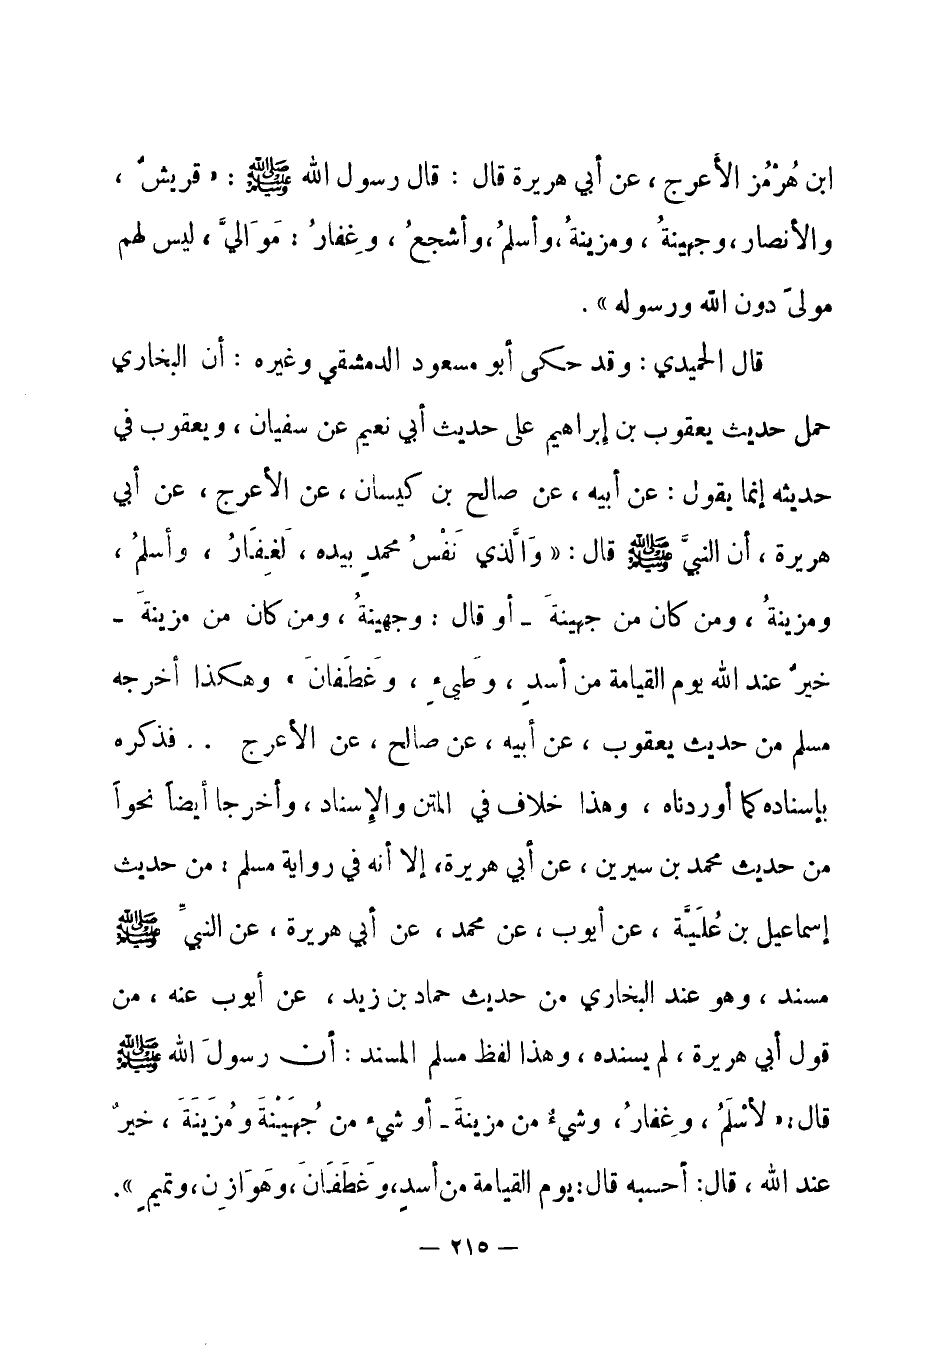 ابن هُرْمُز الأعرج ، عن أبي هريرة قال : قال رسول الله ﷺ : « قريشٌ ،
والأنصار ، وجهينةُ ، ومزينةُ ، وأسلمُ ، وأشجعُ ، وغِفارُ : مَوَاليَّ ، ليس لهم
مولىً دون الله ورسوله » .
قال الحميدي : وقد حكى أبو مسعود الدمشقي وغيره : أن البخاري
حمل حديث يعقوب بن إبراهيم على حديث أبي نعيم عن سفيان ، ويعقوب في
حديثه إنما يقول : عن أبيه ، عن صالح بن كيسان ، عن الأعرج ، عن أبي
هريرة ، أن النبيَّ ﷺ قال : « وَالَّذي نَفْسُ محمدٍ بيده ، لَغِفَارُ ، وأسلمُ ،
ومزينةُ ، ومن كان من جهينةَ ـ أو قال : وجهينةُ ، ومن كان من مزينةَ ـ
خيرٌ عند الله يوم القيامة من أسدٍ ، وطَيىءٍ ، وغَطَفانَ » وهكذا أخرجه
مسلم من حديث يعقوب ، عن أبيه ، عن صالح ، عن الأعرج . . فذكره
بإسناده كما أوردناه ، وهذا خلاف في المتن والإسناد ، وأخرجا أيضاً نحواً
من حديث محمد بن سيرين ، عن أبي هريرة، إلا أنه في رواية مسلم : من حديث
إسماعيل بن عُلَيَّة ، عن أيوب ، عن محمد ، عن أبي هريرة ، عن النبيِّ ﷺ
مسند ، وهو عند البخاري من حديث حماد بن زيد ، عن أيوب عنه ، من
قول أبي هريرة ، لم يسنده ، وهذا لفظ مسلم المسند : أن رسولَ الله ﷺ
قال : « لأسْلَمُ ، وغِفارُ ، وشيءٌ من مزينةَ ـ أو شيء من جُهَيْنَةَ ومُزَيْنَةَ ، خيرٌ
عند الله ، قال : أحسبه قال : يوم القيامة من أسدٍ ، وغَطَفَانَ ، وهَوَازِن ، وتميمٍ » .
— ٢١٥ —